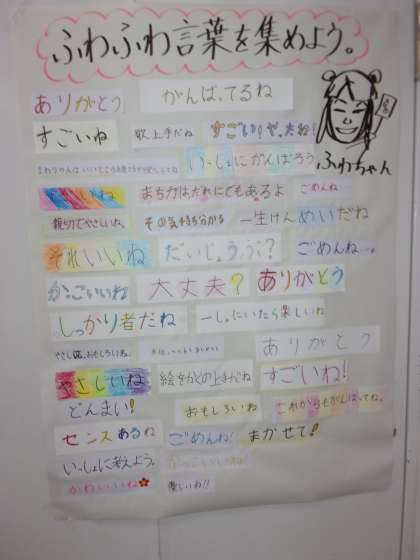 ふわふわ言葉を集めよう。
ありがとう
がんばってるね
すごいね
歌上手だね
すごい!やったね!
ふわちゃん
いっしょにがんばろう
いいね
まちがいはだれにでもあるよ
ごめんね
親切でやさしいね。
その気持ち分かる
一生けんめいだね
それいいね
だいじょうぶ?
ごめんね…。
かっこいいね
大丈夫?
ありがとう
しっかり者だね
一しょにいたら楽しいね
やさしい
おもしろいね。
ありがとう
やさしいね
絵をかくの上手だね
すごいね!
どんまい!
おもしろいね
これからもがんばってね。
センスあるね
ごめんね!
まかせて!
いっしょに考えよう。
かっこいいね!
かわいいね
優しいね!!